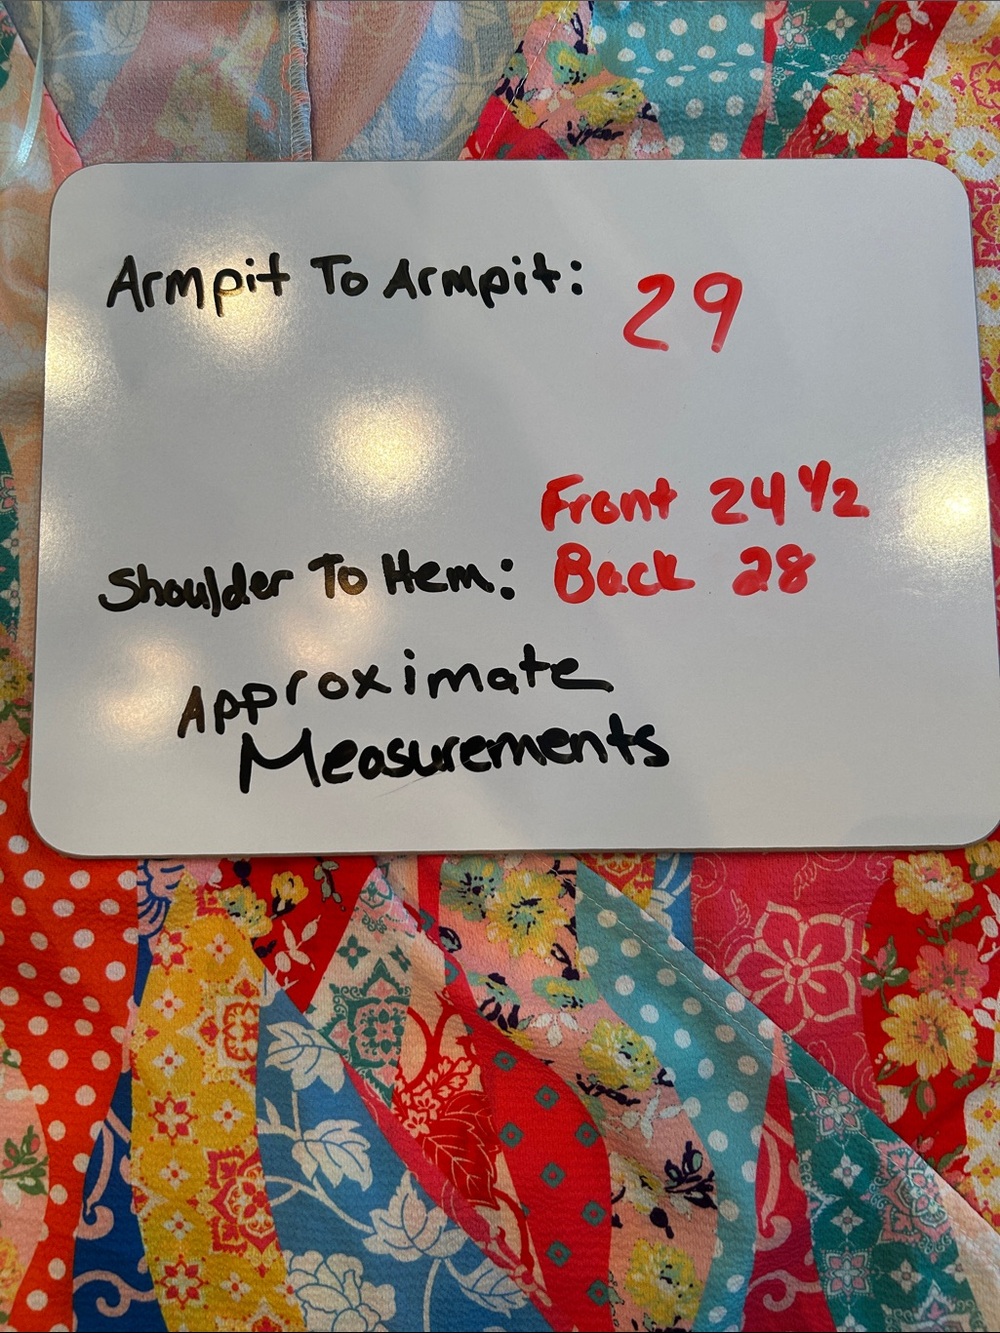 Armpit To Armpit: 29
Front 24 1/2
Shoulder To Hem: Back 28
Approximate
Measurements